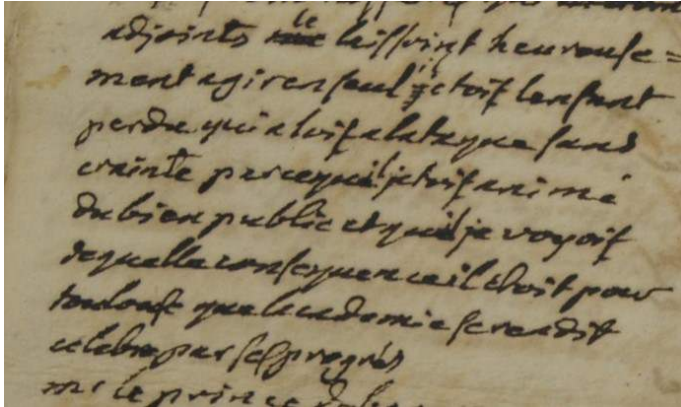 adjoints le laissoint heureuse=
ment agir en seul il etoit lenfant
perdu qui aloit alataque sans
crainte parcequil etoit animé
du bien public et quil voyoit
de quelle consequence il etoit pour
toulouse que lacademie se rendit
celebre par ses progrés
mr le prince